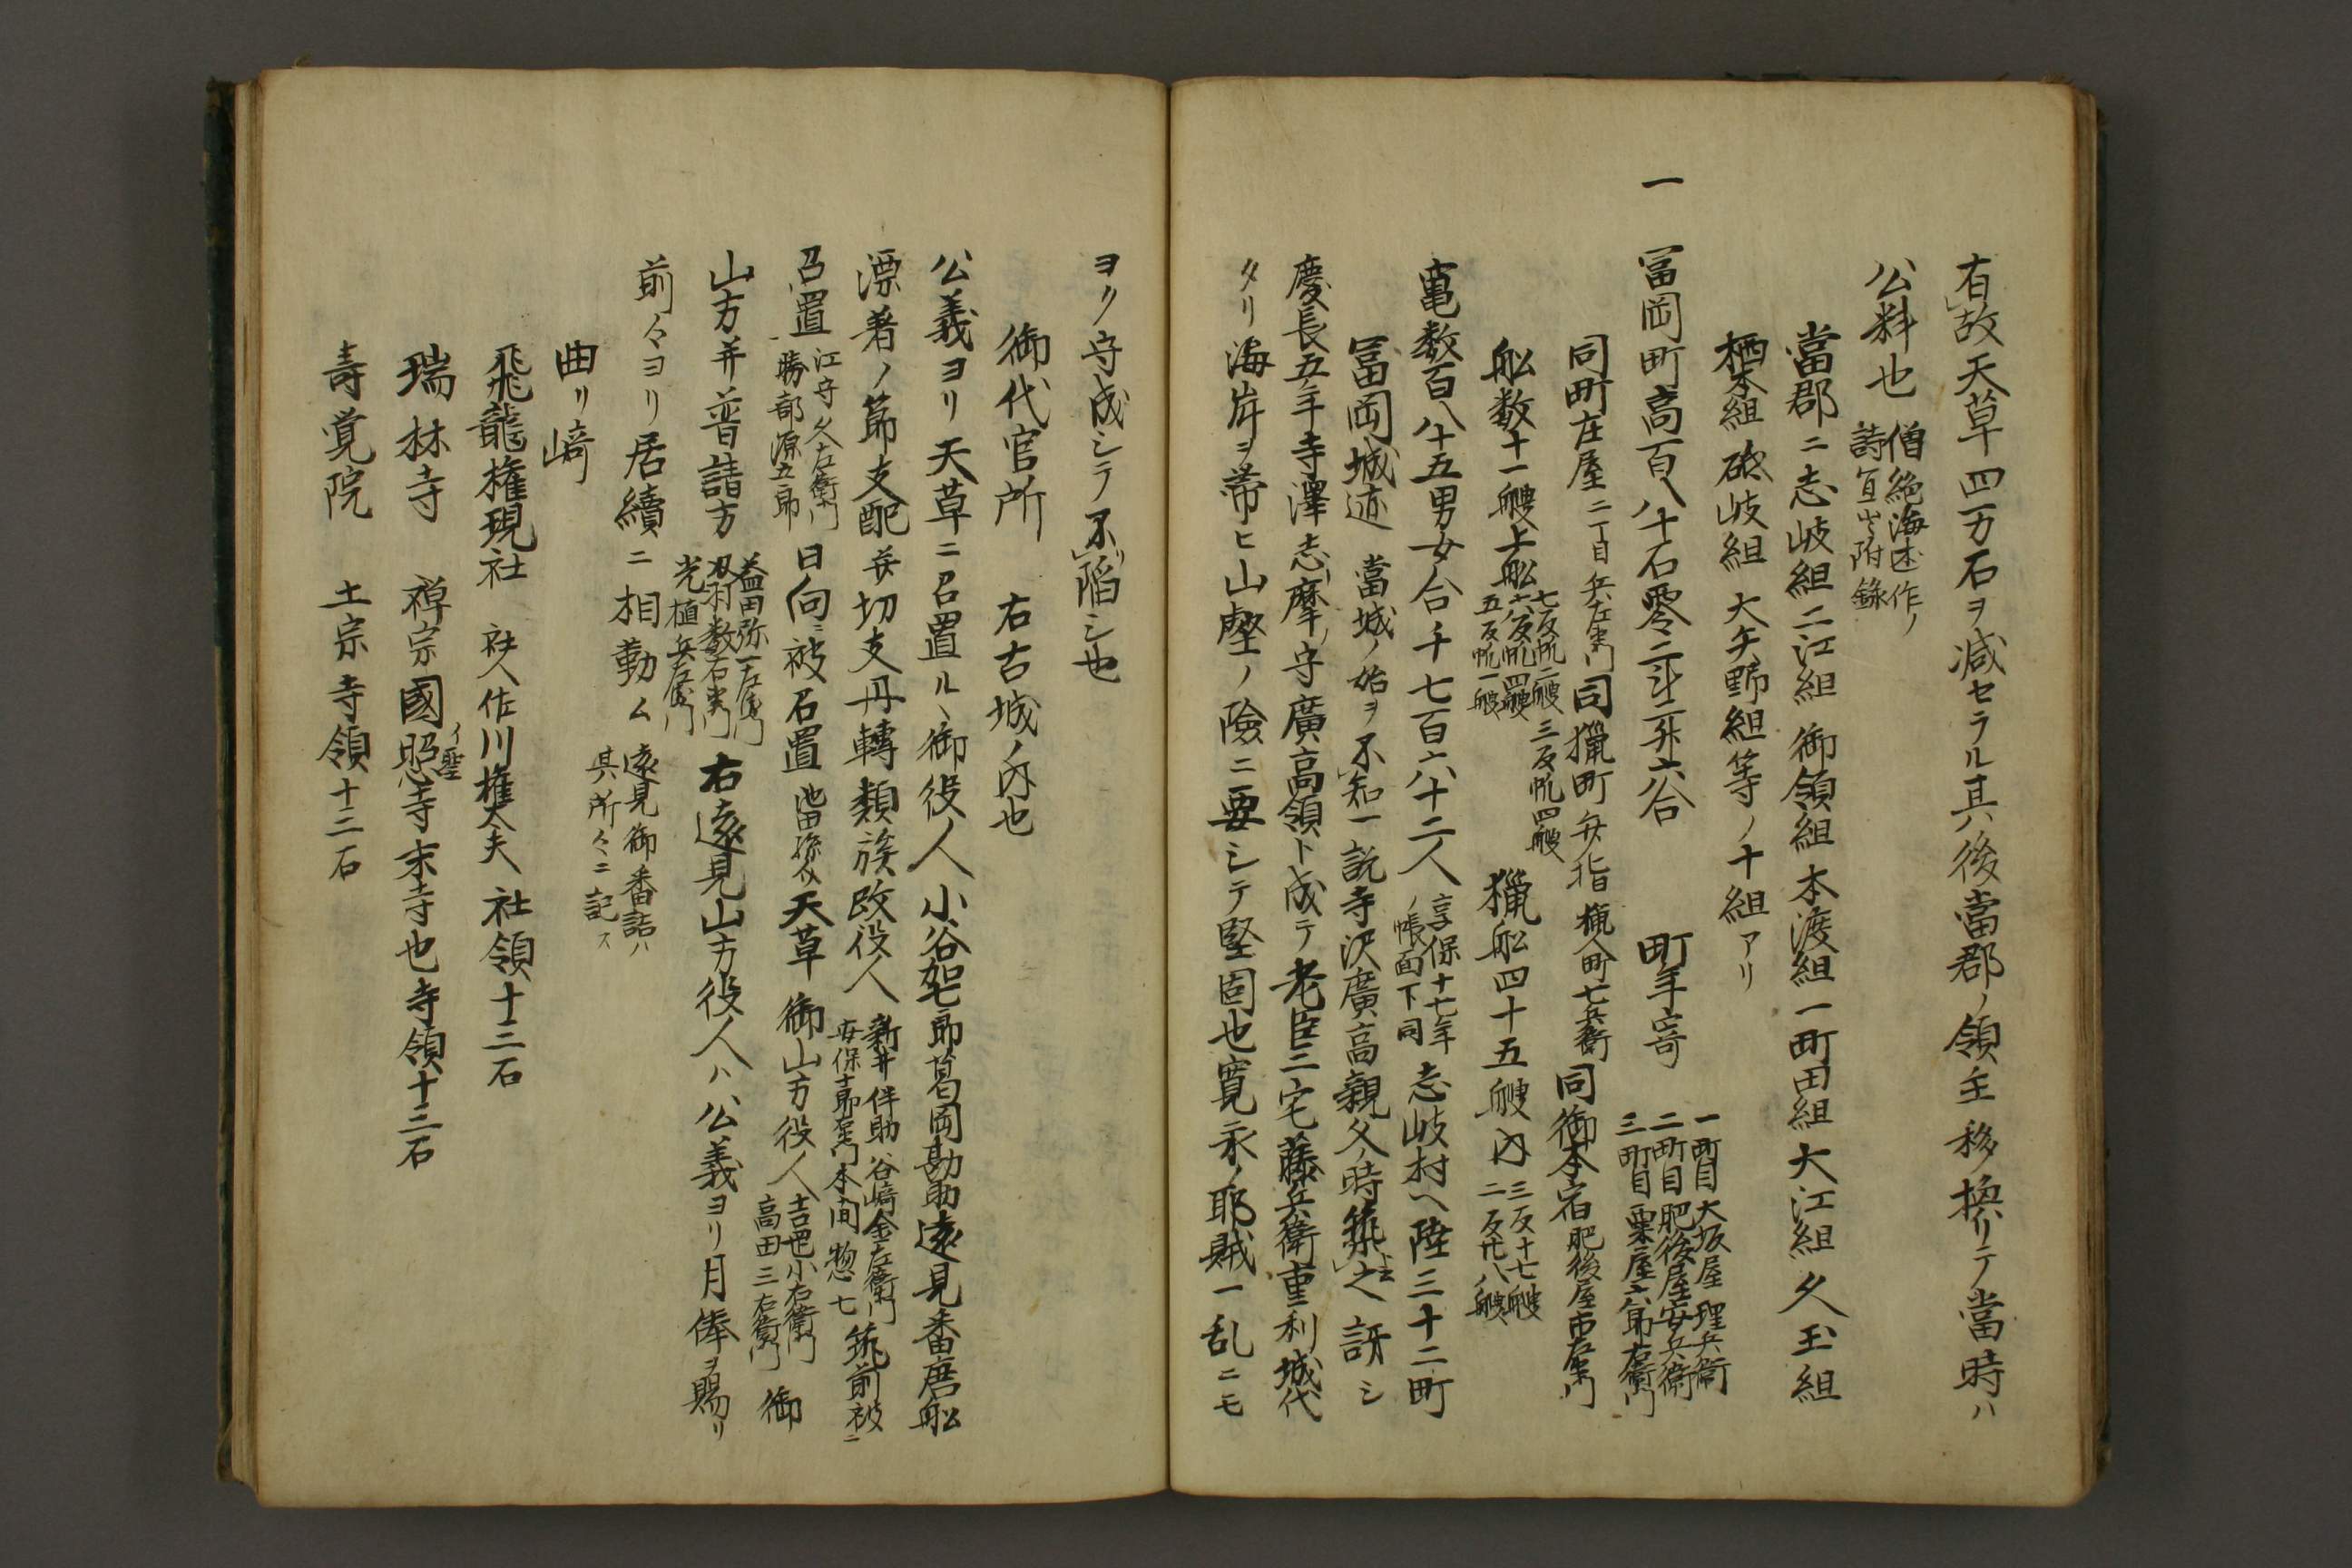 有故天草四万石ヲ減セラル其後當郡ノ領主移リ換リテ當時ハ
公料也
僧絶海述作ノ
詩宜出附錄
當郡ニ志岐組二江組御領組本渡組一町田組大江組久玉組
栖本組砥岐組大矢野組等ノ十組アリ
一冨岡町高百八十石零二斗二升六合
町年寄
一町目大坂屋理兵衛
二町目肥後屋安兵衛
三町目粟屋六郎右衛門
同町庄屋
二丁目兵左衛門
同獵町弁指
獵人町七兵衛
同御本宿
肥後屋市左衛門
舩数十一艘上舩
七反帆二艘
六反帆四艘
五反帆一艘
三反帆四艘
獵舩四十五艘内
三反十七艘
二反廿八艘
竃数百八十五男女合千七百六十二人
享保十七年
ノ帳面下同
志岐村ヘ陸三十二町
冨岡城迹當城ノ始ヲ不知一説寺沢廣高親父ノ時築之云訝シ
慶長五年寺澤志摩ノ守廣高領ト成テ老臣三宅藤兵衛重利城代
タリ海岸ヲ帯ヒ山壑ノ險ニ要シテ堅固也寛永ノ耶賊一乱ニモ
ヨク守成シテ不陷シ也
御代官所 右古城ノ内也
公義ヨリ天草ニ召置ル丶御役人小谷架七郎葛岡勘助遠見番唐舩
漂着ノ節支配并切支丹轉類族改役人
新井伴助谷﨑金左衛門
安保十郎左衛門本間惣七
筑前被ニ
召置
江守久左衛門
勝部源五郎
日向ニ被召置
池田孫八
天草御山方役人
吉邑小右衛門
高田三右衛門
御
山方并普請方
益田弥一左衛門
羽村数右衛門
光植兵左衛門
右遠見山方役人ハ公義ヨリ月俸ヲ賜リ
前々ヨリ居續ニ相勤ム
遠見御番詰ハ
其所々ニ記ス
曲リ﨑
飛龍権現社 社人佐川権大夫 社領十三石
瑞林寺 禅宗國照寺末寺也寺領十三石
イ聖
壽覚院 土宗寺領十二石